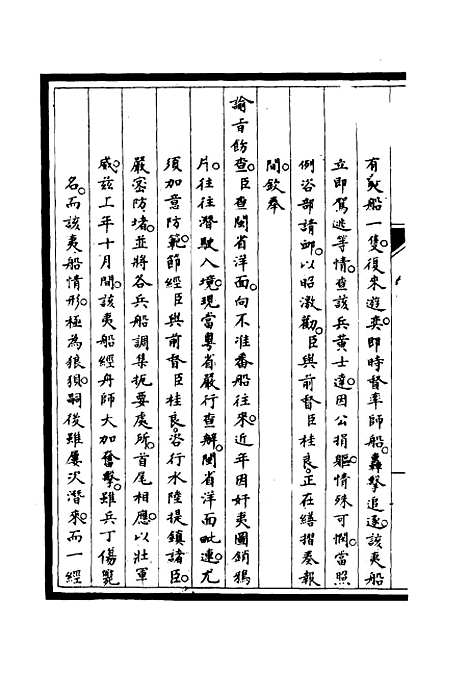 有夷船一隻。復來遊奕。即時督率師船。轟擊追逐。該夷船
立即駕逃等情。查該兵黃士達。因公捐軀。情殊可憫。當照
例咨部請卹。以昭激勸。臣與前督臣桂良。正在繕摺奏報
間。欽奉
諭旨飭查。臣查閩省洋面。向不准番船往來。近年因奸夷圖銷鴉
片。往往潛駛入境。現當粵省嚴行查辦。閩省洋面毗連。尤
須加意防範。節經臣與前督臣桂良。咨行水陸提鎮諸臣。
嚴密防堵。並將各兵船調集扼要處所。首尾相應。以壯軍
威。茲上年十月間。該夷船經舟師大加奮擊。雖兵丁傷斃
名。而該夷船情形。極為狼狽。嗣後雖屢次潛來。而一經